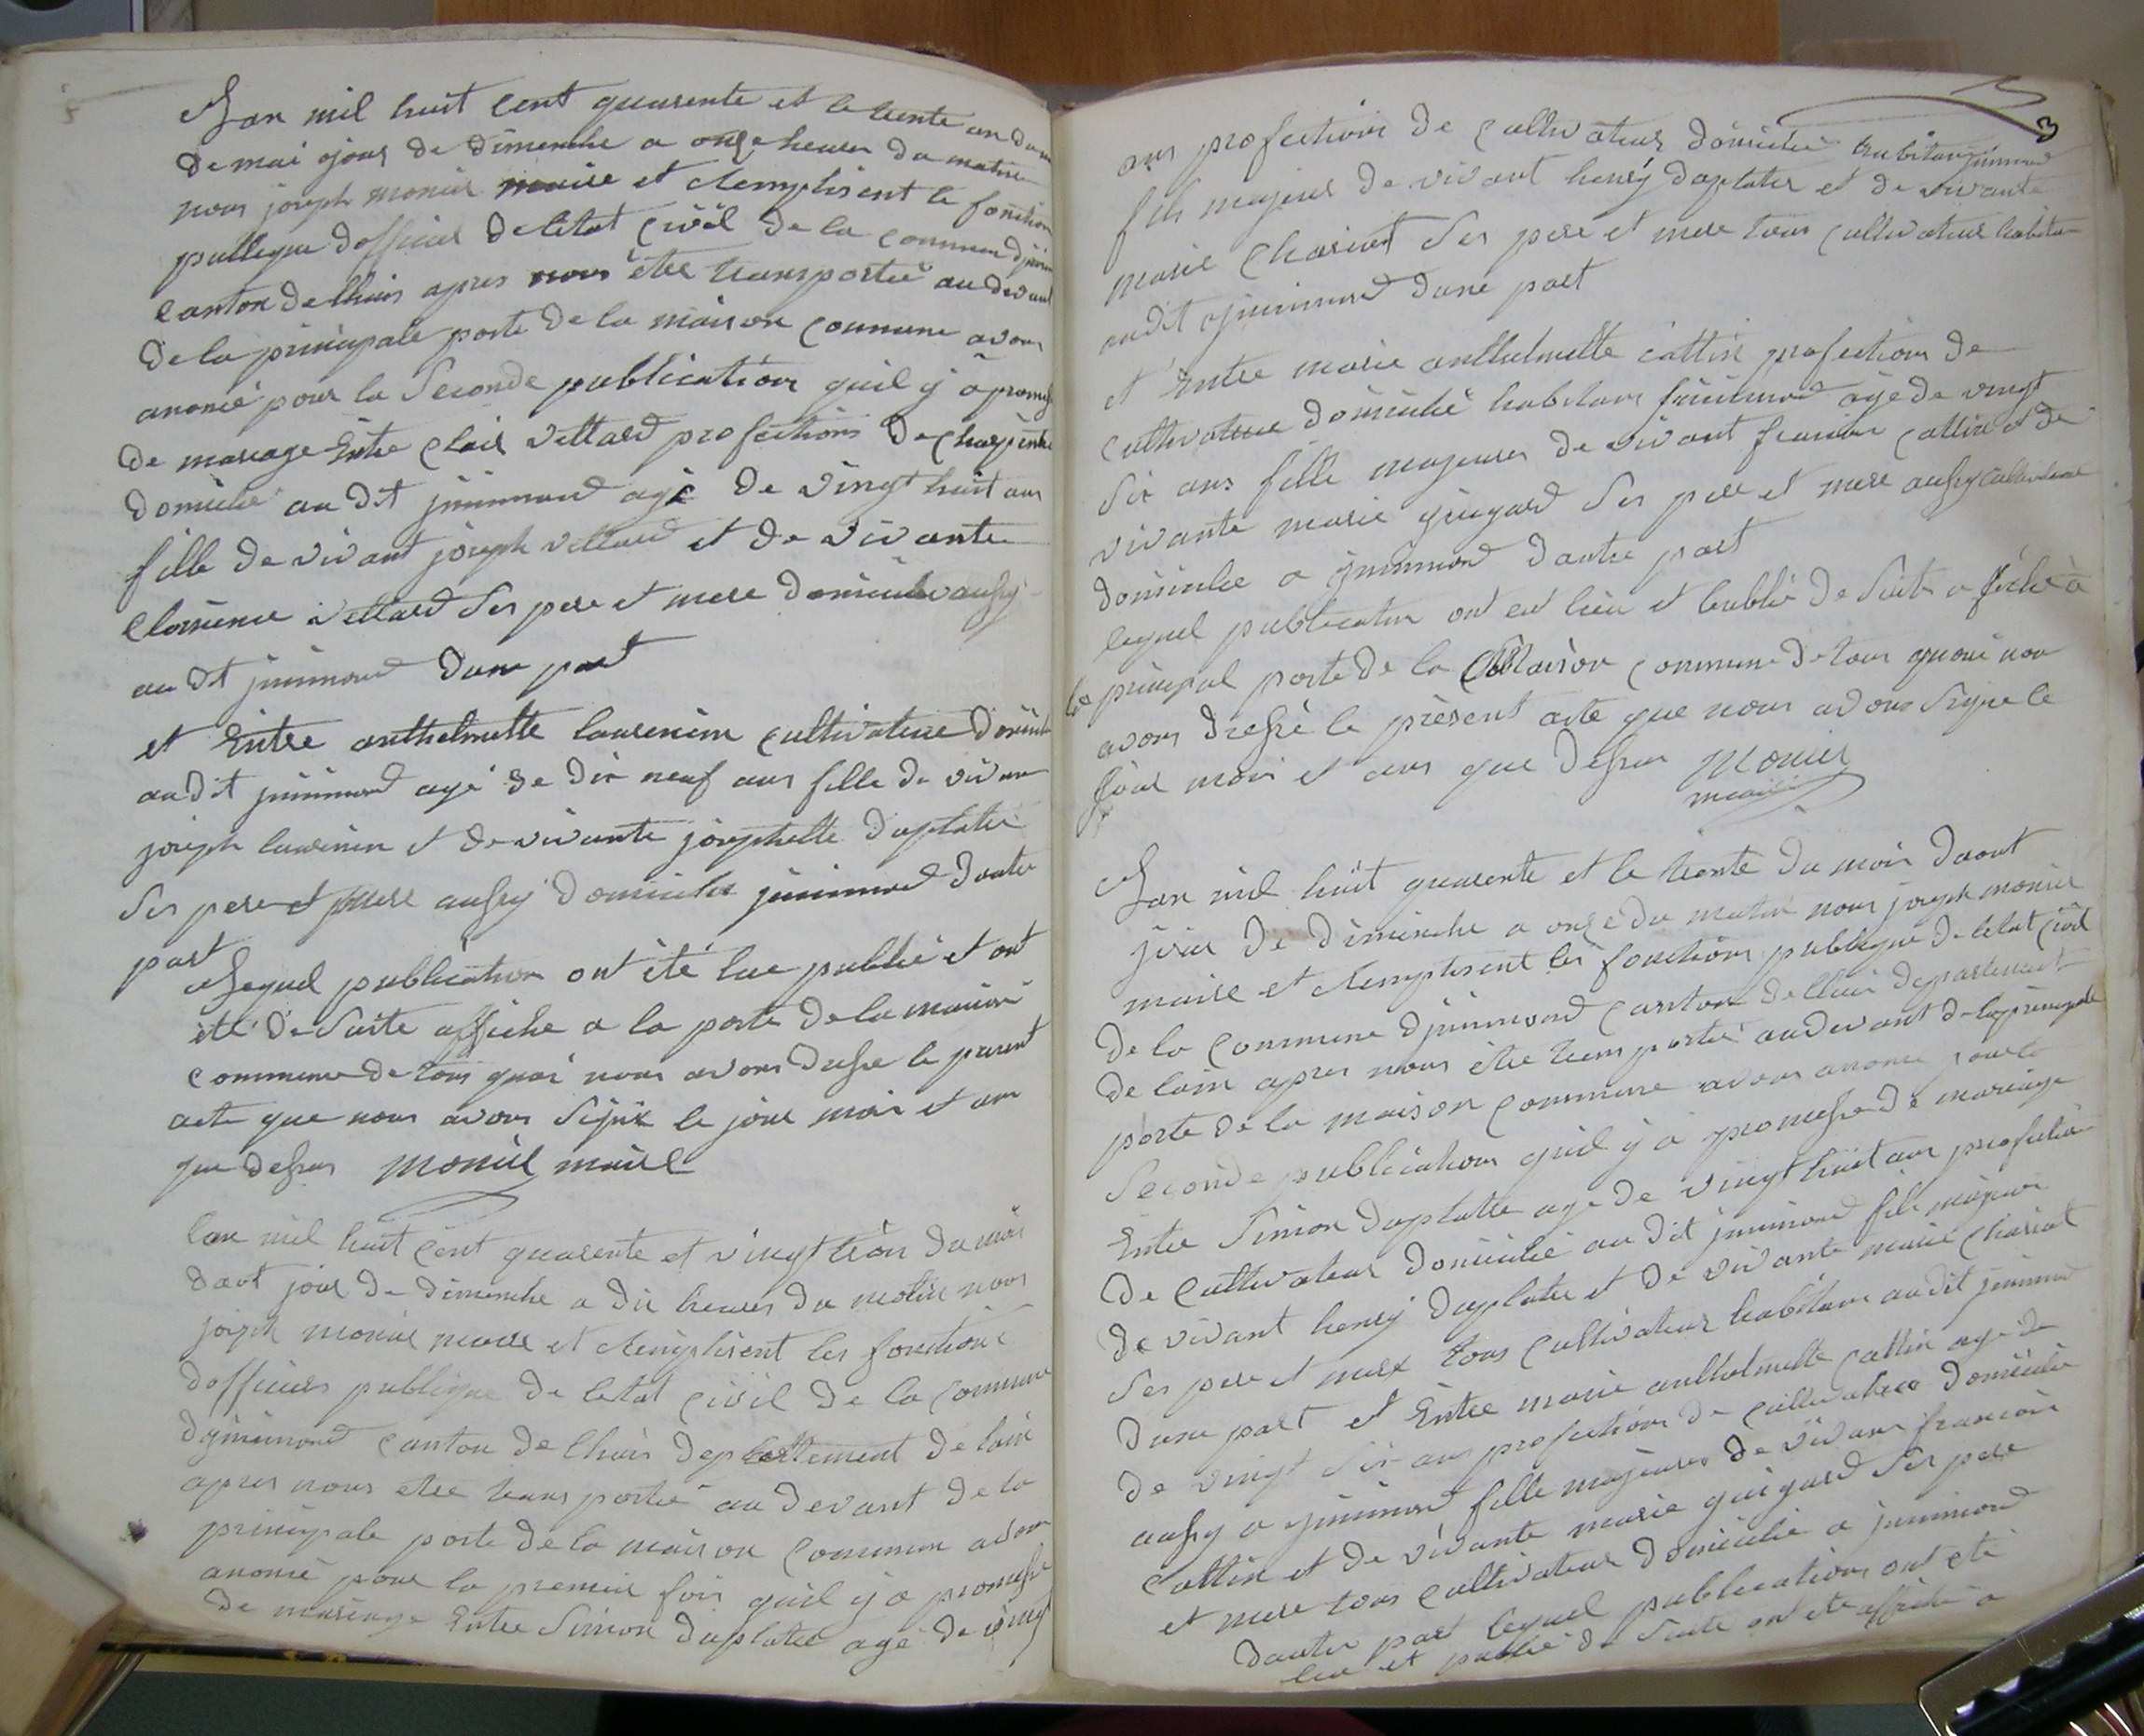 Lan mil huit cent quarente et le trente un du
de mai ojour de dimenche a onze heures du matin
nous joseph monier maire et Remplisent le fonction
publique dofficier deletat civil de la commune
canton de lhuis apres nous être transportée au devant
de la principale porte de la maison commune avons
anoncé pour la Seconde publication quil y a promesse
de mariage Entre clair vettard profections de charpentie
domicilié au dit jnnimond agé de vingt huit ans
fille de vivant joseph vettard et de vivante
clorinne vettard Ses pere et mere domicilié aussy
au dit jnnimond dune part
et Entre anthelmette laurenim cultivatrice domicile
au dit jnnimond agé de dix neuf ans fille de vivan
joseph laurenim et de vivante josephette duplatre
Ses pere et mere aussy domicilie jnnimond dautre
part
Lequel publication ont été lue publié et ont
été de Suite affiche a la porte de la maison
commune de tous quoi nous avons dresse le present
acte que nous avons Signe le jour mois et an
que dessus monier maire
lan mil huit cent quarente et vingt trois du mois
daout jour de dimenche a dix heures du matin nous
joseph monier maire et Remplisent les fonctions
dofficier publique de letat civil de la commune
djnnimond canton de lhuis departtement de lain
apres nous etre transportée au devant de la
principale porte de la maison commune avons
anoncé pour la premier fois quil y a promesse
de mariage Entre Simon duplatre agé de vingt
3
ans profections de cultivateur domicilie habitans jnnimond
fils majeur de vivant henry duplatre et de vivante
marie chariot Ses pere et mere tous cultivateur habitan
audit jnnimond dune part
et Entre marie anthelmette cattin profections de
cultivatrice domicilié habitans jnnimond agé de vingt
Six ans fille majeures de vivant francois cattin et de
vivante marie guigard Ses pere et mere aussy cultivateur
domicilie a jnnimond dautre part
lequel publication ont eut lieu et publié de Suite affiché a
la principal porte de la Maison commune de tous quoi nou
avons dressé le présent acte que nous avons Signe le
jour mois et ans que dessus Monier
maire
Lan mil huit quarente et le trente du mois daout
jour de dimenche a onze du matin nous joseph monier
maire et Remplisent les fonctions publique de letat civil
de la commune djnnimond canton de lhuis departement
de lain apres nous être transportée au devant de la principale
porte de la maison commune avons anoncé pour la
Seconde publications quil y a promesse de mariage
Entre Simon duplatre agé de vingt huit ans profection
de cultivateur domicilié au dit jnnimond fils majeur
de vivant henry duplatre et de vivante marie chariot
Ses pere et mere tous cultivateur habitans audit jnnimond
dune part et Entre marie anthelmette cattin agé de
de vingt Six ans profections de cultivatrice domicilie
aussy a jnnimond fille majeures de vivans francois
cattin et de vivante marie guigard Ses pere
et mere tous cultivateur domicilie a jnnimond
dautre part lequel publications ont eté
lue et publié de Suite ont ete affiché a